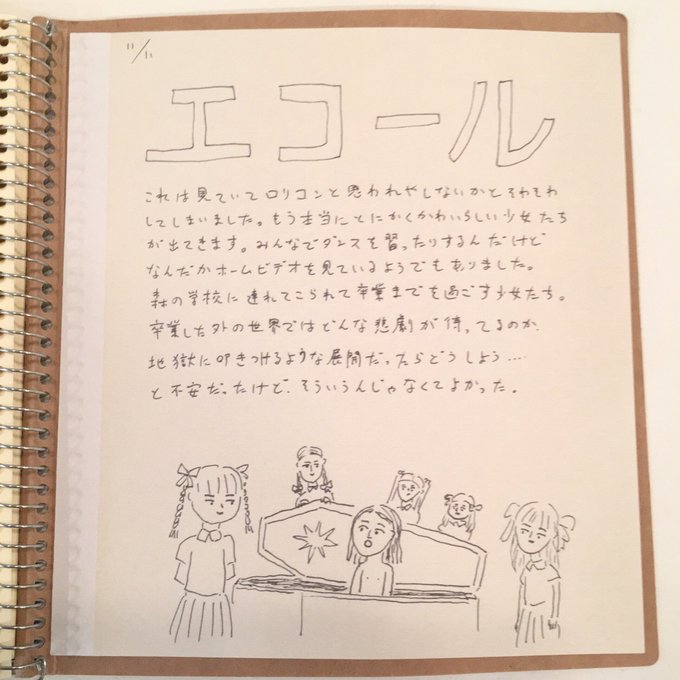 11/13
エコール
これは見ていてロリコンと思われやしないかとそわそわ
してしまいました。もう本当にとにかくかわいらしい少女たち
が出てきます。みんなでダンスを習ったりするんだけど
なんだかホームビデオを見ているようでもありました。
森の学校に連れてこられて卒業までを過ごす少女たち。
卒業した外の世界ではどんな悲劇が待ってるのか、
地獄に叩きつけるような展開だったらどうしよう....
と不安だったけど、そういうんじゃなくてよかった。